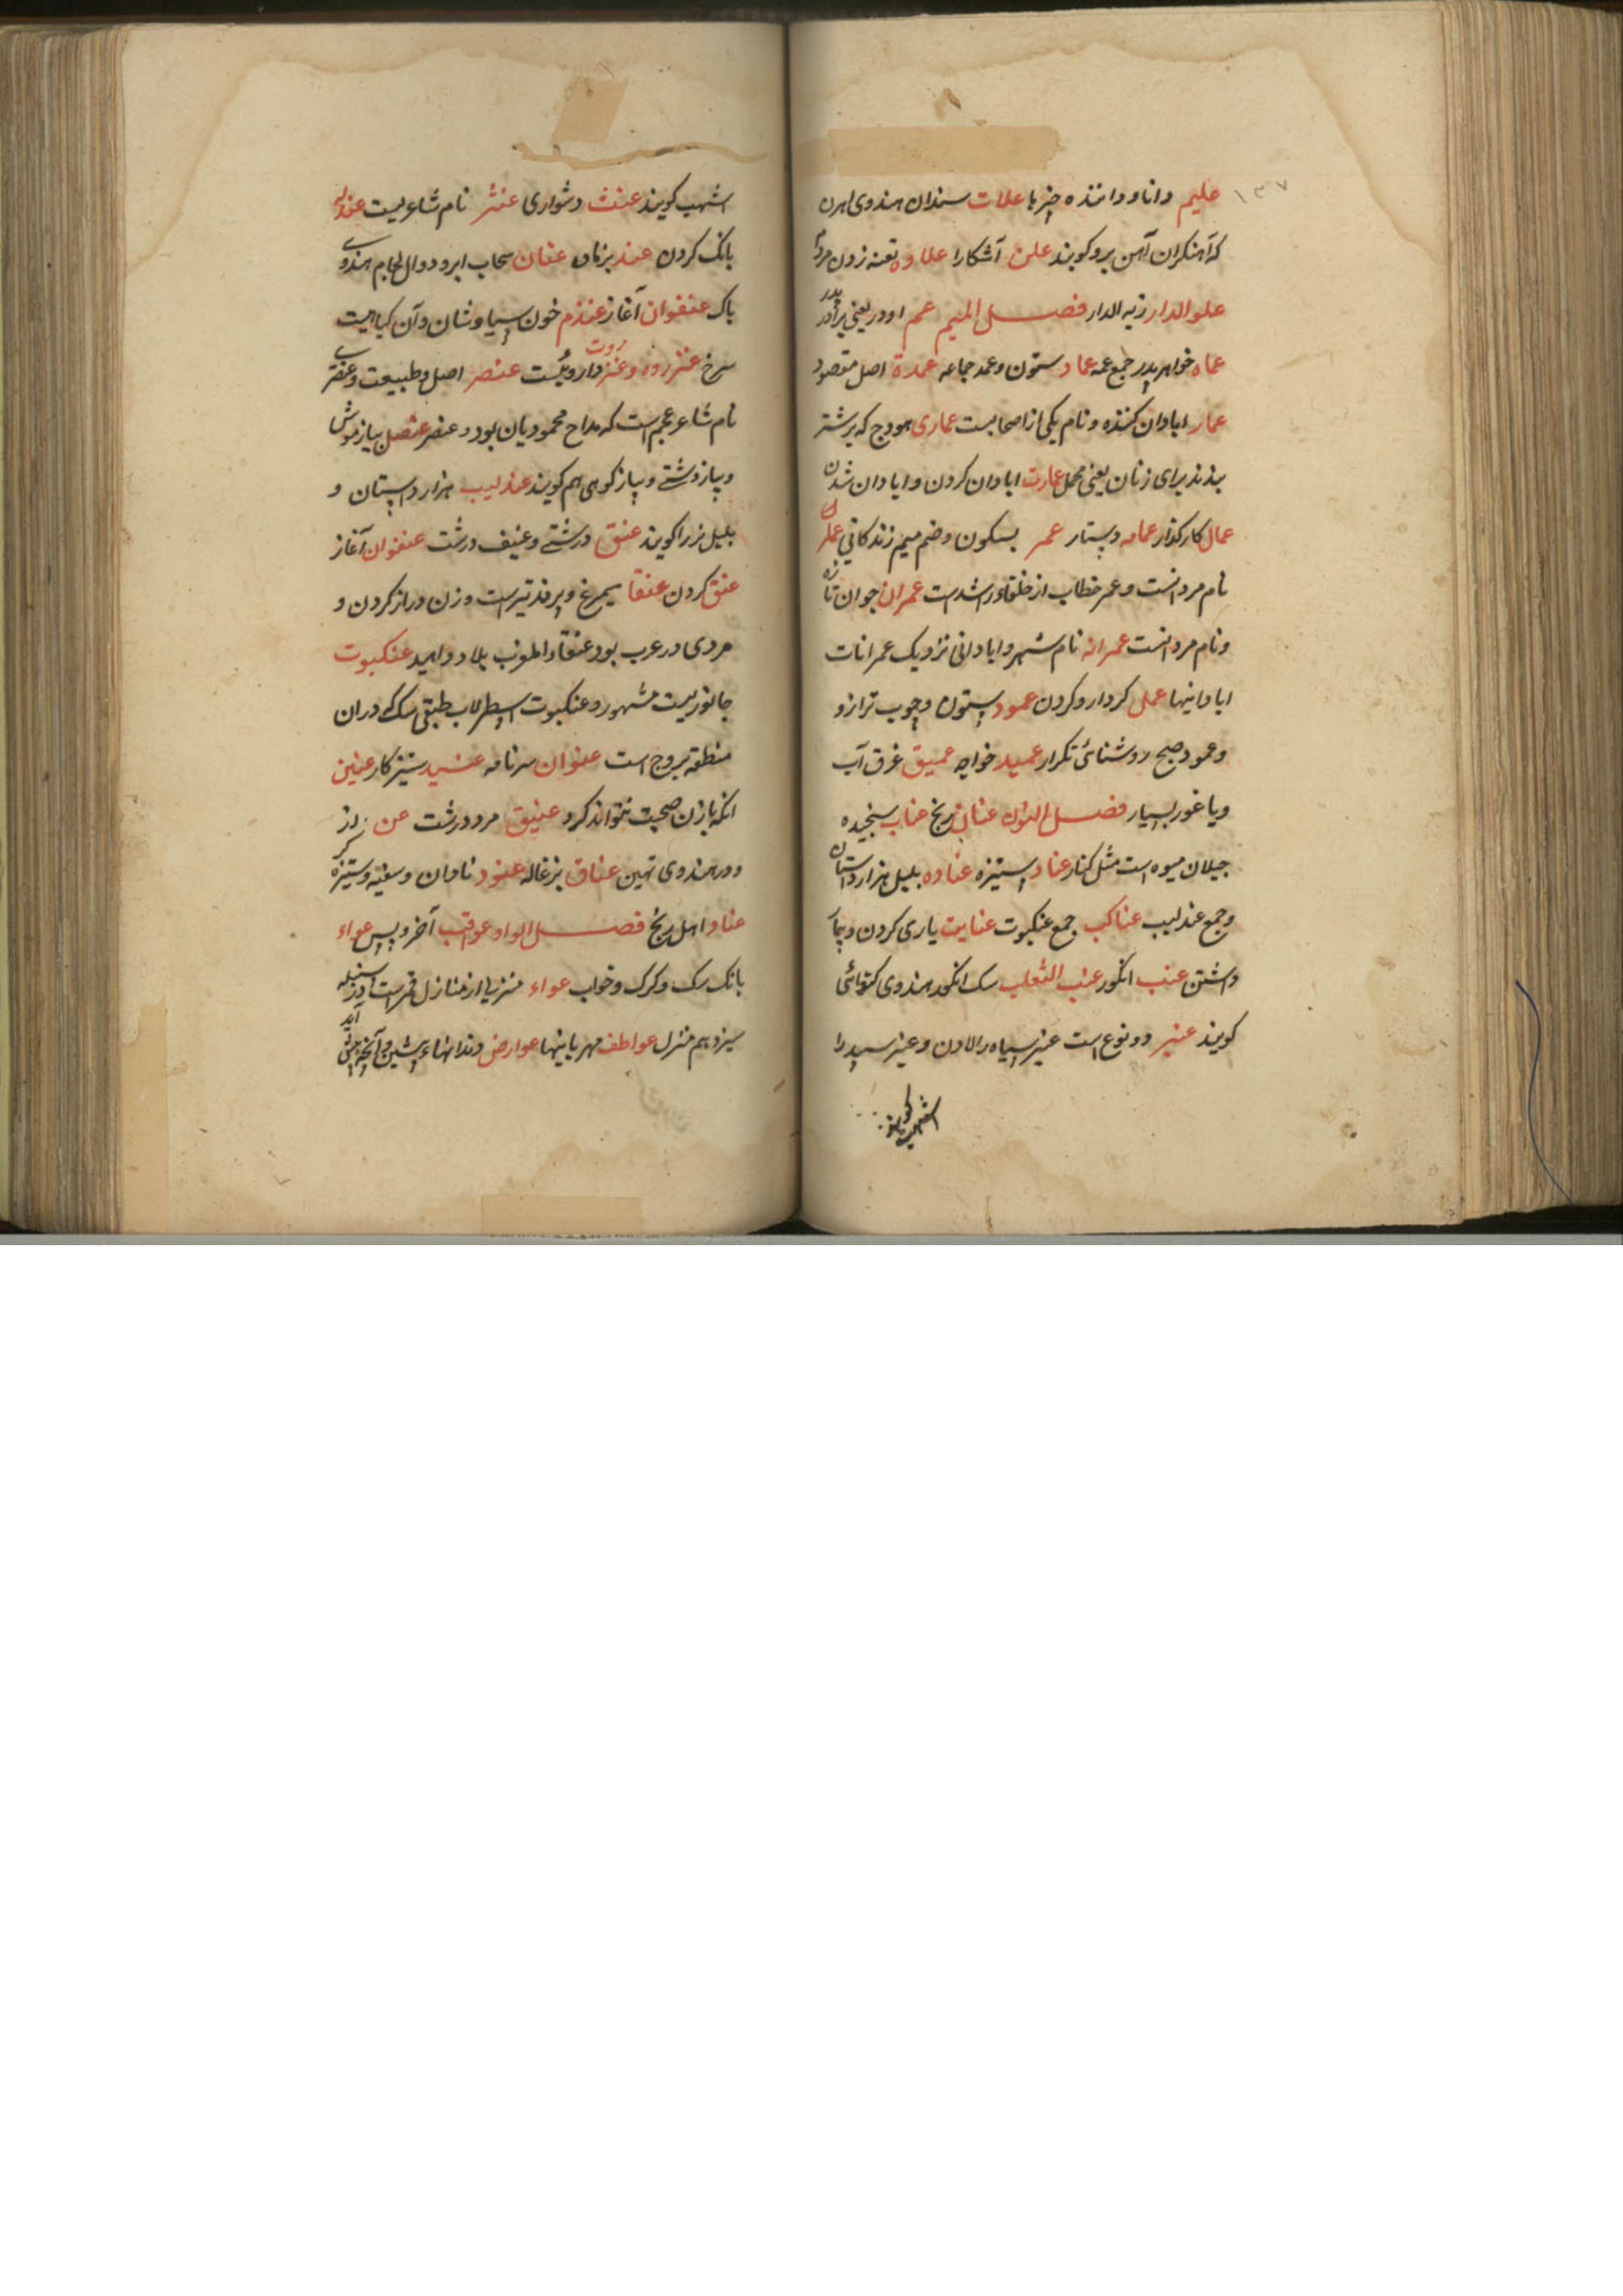 ۱۳۷
علیم دانا و داننده چیزها علات سندان هندوی اهرن
که آهنگران آهن برو کوبند علن آشکارا علاوه
علو الدار زبه الدار فصل المیم عم اودر یعنی برادر پدر
عماه خواهر پدر جمع عمه عماد ستون و عمد جماعه عمدة اصل مقصود
عمار ابادان کننده و نام یکی از اصحابست عماری هودج که بر شتر
بندند برای زنان یعنی محمل عمارت ابادان کردن و ابادان شدن
عمال کارکذار عمامه دستار عمر بسکون و ضم میم زندکانی
نام مردانست و عمر خطاب از خلفاء راشدست عمران جوان تازه
و نام مردانست عمرانه نام شهر و ابادانی نزدیک عمرانات
ابادانیها عمل کردار و کردن عمود ستون و چوب ترازو
و عمود صبح روشنائی تکرار عمید خواجه عمیق غرق آب
و یا غور بسیار فصل النون عنان رنج عناب سنجیده
جیلان میوه است مثل کنار عناد ستیزه عناده بلبل هزار داستان
و جمع عندلیب عناکب جمع عنکبوت عنایت یاری کردن و
داشتن عنب انکور عنب الثعلب سک انکور هندوی کتوائی
کویند عنبر دو نوع است عنبر سیاه را لادن و عنبر سپید را
اشهب کویند
اشهب کویند عنت دشواری عنتر نام شاعریست
بانک کردن عند بزمان عنان سحاب ابر و دوال لجام هندوی
باک عنفوان آغاز عندم خون سیاوشان و آن کیاهیست
سرخ عنزروت و عنزروه داروئیست عنصر اصل و طبیعت و عنصری
نام شاعر عجم است که مداح محمودیان بود و عنصر عنصل پیاز موش
و پیاز دشتی و پیاز کوهی هم کویند عندلیب هزار داستان و
بلبل نر را کویند عنق درشتی و عنیف درشت عنفوان آغاز
عنق کردن عنقا سیمرغ و پرنده تیرست و زن دراز کردن و
مردی در عرب بود عنقاء المغرب بلا و دواهید عنکبوت
جانوریست مشهور و عنکبوت اسطرلاب طبقی سک که دران
منطقه بروج است عنوان سرنامه عنید ستیزکار عنین
انکه با زن صحبت نتواند کرد عنیق مرد درشت عن از
و در هندوی تهین عناق بزغاله عنود نادان و سفیه و ستیزه کر
عنا و اهل رنج فصل الواو عواقب آخر و پس عواء
بانک سک و کرک و خواب عواء منزلی از منازل قمرست در سنبله
سیزدهم منزل عواطف مهربانیها عوارض دندانهاء پیشین و آنچه پیش آید